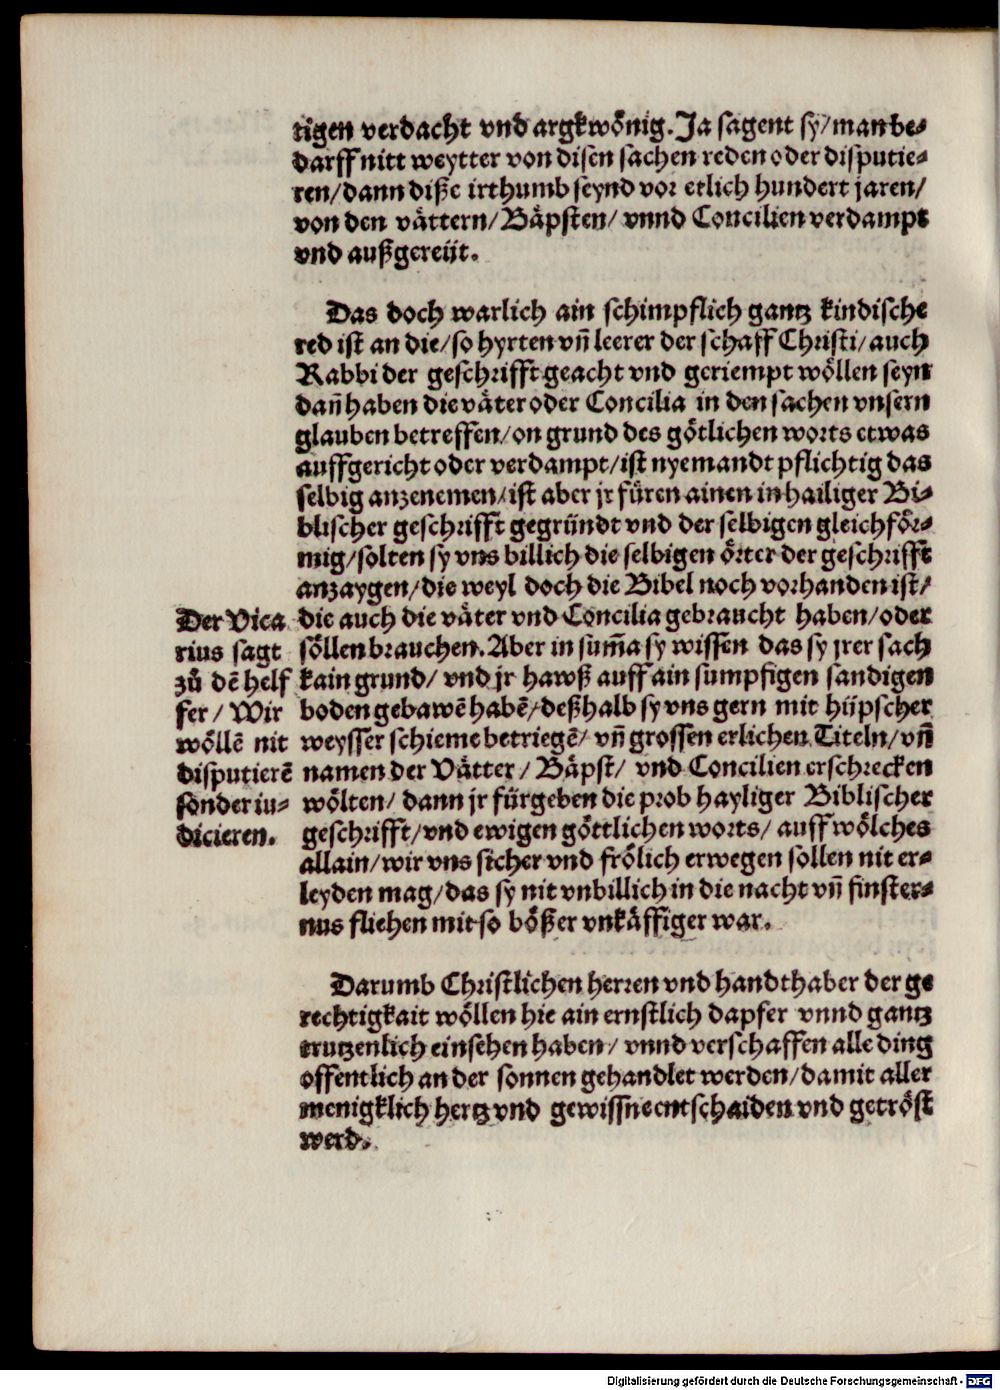 rigen verdacht vnd argkwönig. Ja sagent sy/ man be-
darff nitt weytter von disen sachen reden oder disputie-
ren/ dann diße irthumb seynd vor etlich hundert jaren/
von den vättern/ Bäpsten/ vnnd Concilien verdampt
vnd außgereüt.
Das doch warlich ain schimpflich gantz kindische
red ist an die/ so hyrten vñ leerer der schaff Christi/ auch
Rabbi der geschrifft geacht vnd geriempt wöllen seyn
dañ haben die väter oder Concilia in den sachen vnsern
glauben betreffen/ on grund des götlichen worts etwas
auffgericht oder verdampt/ ist nyemandt pflichtig das
selbig anzenemen/ ist aber jr füren ainen in hailiger Bi-
blischer geschrifft gegründt vnd der selbigen gleichför-
mig/ solten sy vns billich die selbigen örter der geschrifft
anzaygen/ die weyl doch die Bibel noch vorhanden ist/
die auch die väter vnd Concilia gebraucht haben/ oder
söllen brauchen. Aber in sum̃a sy wissen das sy jrer sach
kain grund/ vnd jr hawß auff ain sumpfigen sandigen
boden gebawẽ habẽ/ deßhalb sy vns gern mit hüpscher
weysser schieme betriegẽ/ vñ grossen erlichen Titeln/ vñ
namen der Vätter/ Bäpst/ vnd Concilien erschrecken
wölten/ dann jr fürgeben die prob hayliger Biblischer
geschrifft/ vnd ewigen göttlichen worts/ auff wölches
allain/ wir vns sicher vnd frölich erwegen sollen nit er-
leyden mag/ das sy nit vnbillich in die nacht vñ finster-
nus fliehen mit so bößer vnkäffiger war.
Der Vica
rius sagt
zů dẽ helf
fer/ Wir
wöllẽ nit
disputierẽ
sonder iu-
dicieren.
Darumb Christlichen herren vnd handthaber der ge
rechtigkait wöllen hie ain ernstlich dapfer vnnd gantz
trutzenlich einsehen haben/ vnnd verschaffen alle ding
offentlich an der sonnen gehandlet werden/ damit aller
menigklich hertz vnd gewissne entschaiden vnd getröst
werd.
Digitalisierung gefördert durch die Deutsche Forschungsgemeinschaft - DFG